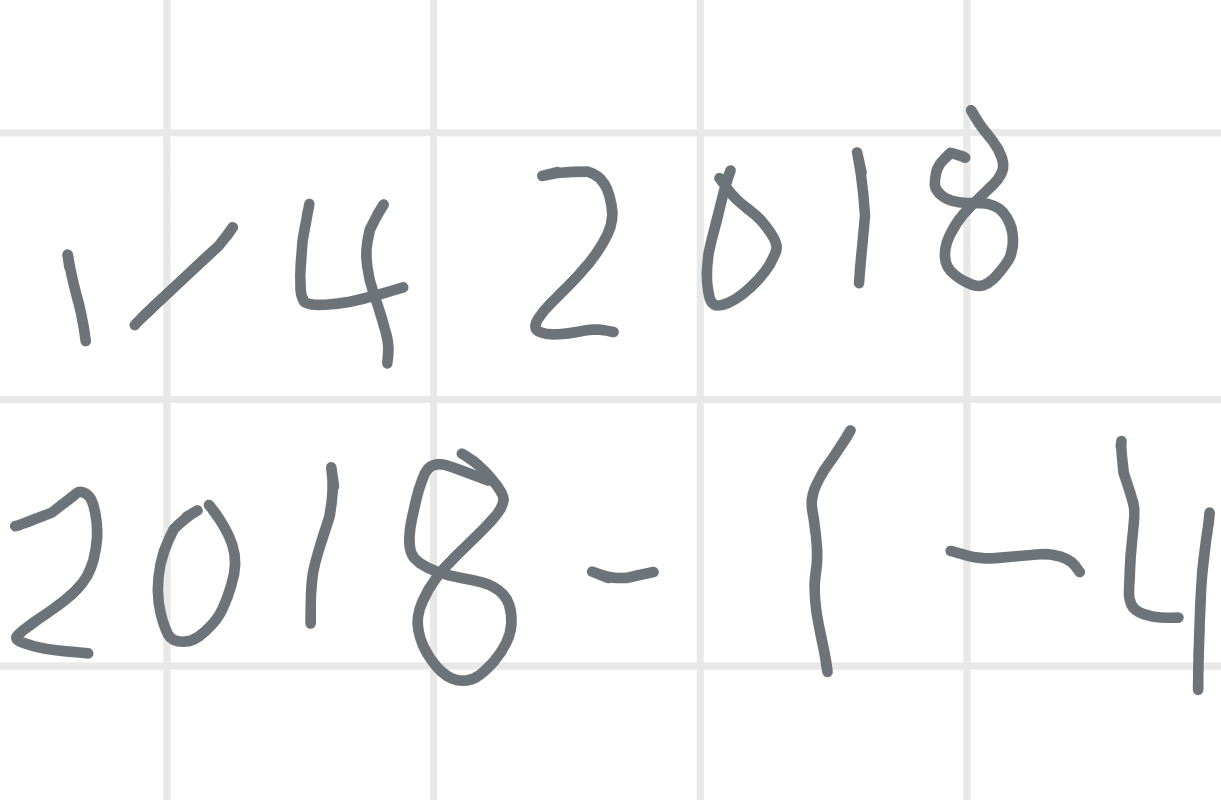 1/4 2018
2018-1-4